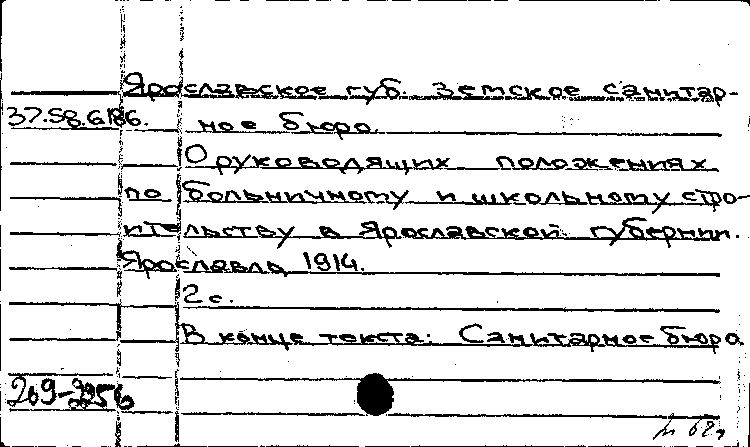 Ярославское губ. Земское санитар-
37.58.6/86.
ное бюро.
О руководящих положениях
по больничному и школьному стро-
ительству в Ярославской губернии.
Ярославль 1914.
2 с.
В конце текста: Санитарное бюро
209-2256